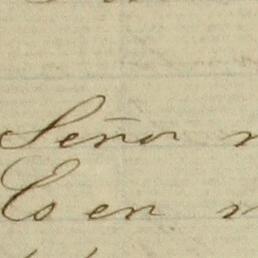 Señor
Es en